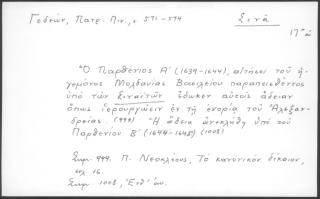 Γεδεών, Πατρ. Πιν., σ 571-574
Σινᾶ
17ος αἰ
"Ὁ Παρθένιος Α΄ (1639-1644), αἰτήσει τοῦ ἡ-
γεμόνος Μολδαυίας Βασιλείου παραπεισθέντος
ὑπὸ τῶν Σιναϊτῶν ἔδωκεν αὐτοῖς ἄδειαν
ὅπως ἱερουργῶσιν ἐν τῇ ἐνορίᾳ τοῦ Ἀλεξαν-
δρείας. (999) "Ἡ ἄδεια ἀνεκλήθη ὑπὸ τοῦ
Παρθενίου Β΄ (1644-1645) (1008)
Σημ. 999. Π. Νεοκλέους, Τὸ κανονικὸν δίκαιον,
σελ. 16.
Σημ. 1008, Ἔνθ' ἀν.